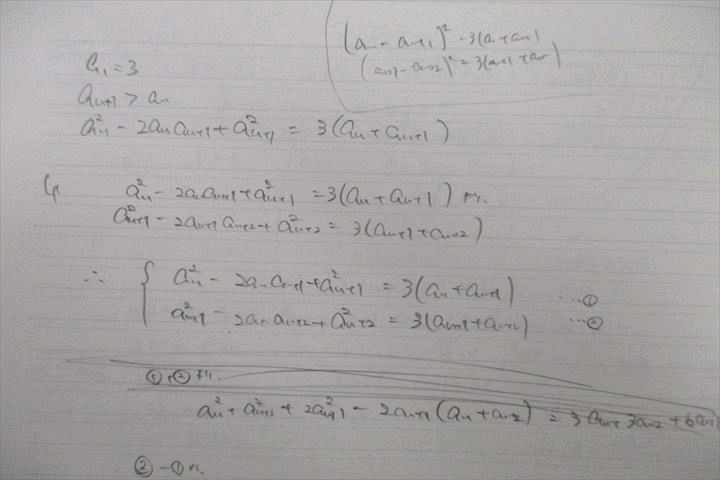 (aₙ - aₙ₊₁)² = 3(aₙ + aₙ₊₁)
(aₙ₊₁ - aₙ₊₂)² = 3(aₙ₊₁ + aₙ₊₂)
a₁ = 3
aₙ₊₁ > aₙ
aₙ² - 2aₙaₙ₊₁ + aₙ₊₁² = 3(aₙ + aₙ₊₁)
aₙ² - 2aₙaₙ₊₁ + aₙ₊₁² = 3(aₙ + aₙ₊₁) より
aₙ₊₁² - 2aₙ₊₁aₙ₊₂ + aₙ₊₂² = 3(aₙ₊₁ + aₙ₊₂)
∴ { aₙ² - 2aₙaₙ₊₁ + aₙ₊₁² = 3(aₙ + aₙ₊₁) …①
aₙ₊₁² - 2aₙ₊₁aₙ₊₂ + aₙ₊₂² = 3(aₙ₊₁ + aₙ₊₂) …②
①+② より.
aₙ² + aₙ₊₂² + 2aₙ₊₁² - 2aₙ₊₁(aₙ + aₙ₊₂) = 3aₙ + 3aₙ₊₂ + 6aₙ₊₁
② - ① より.